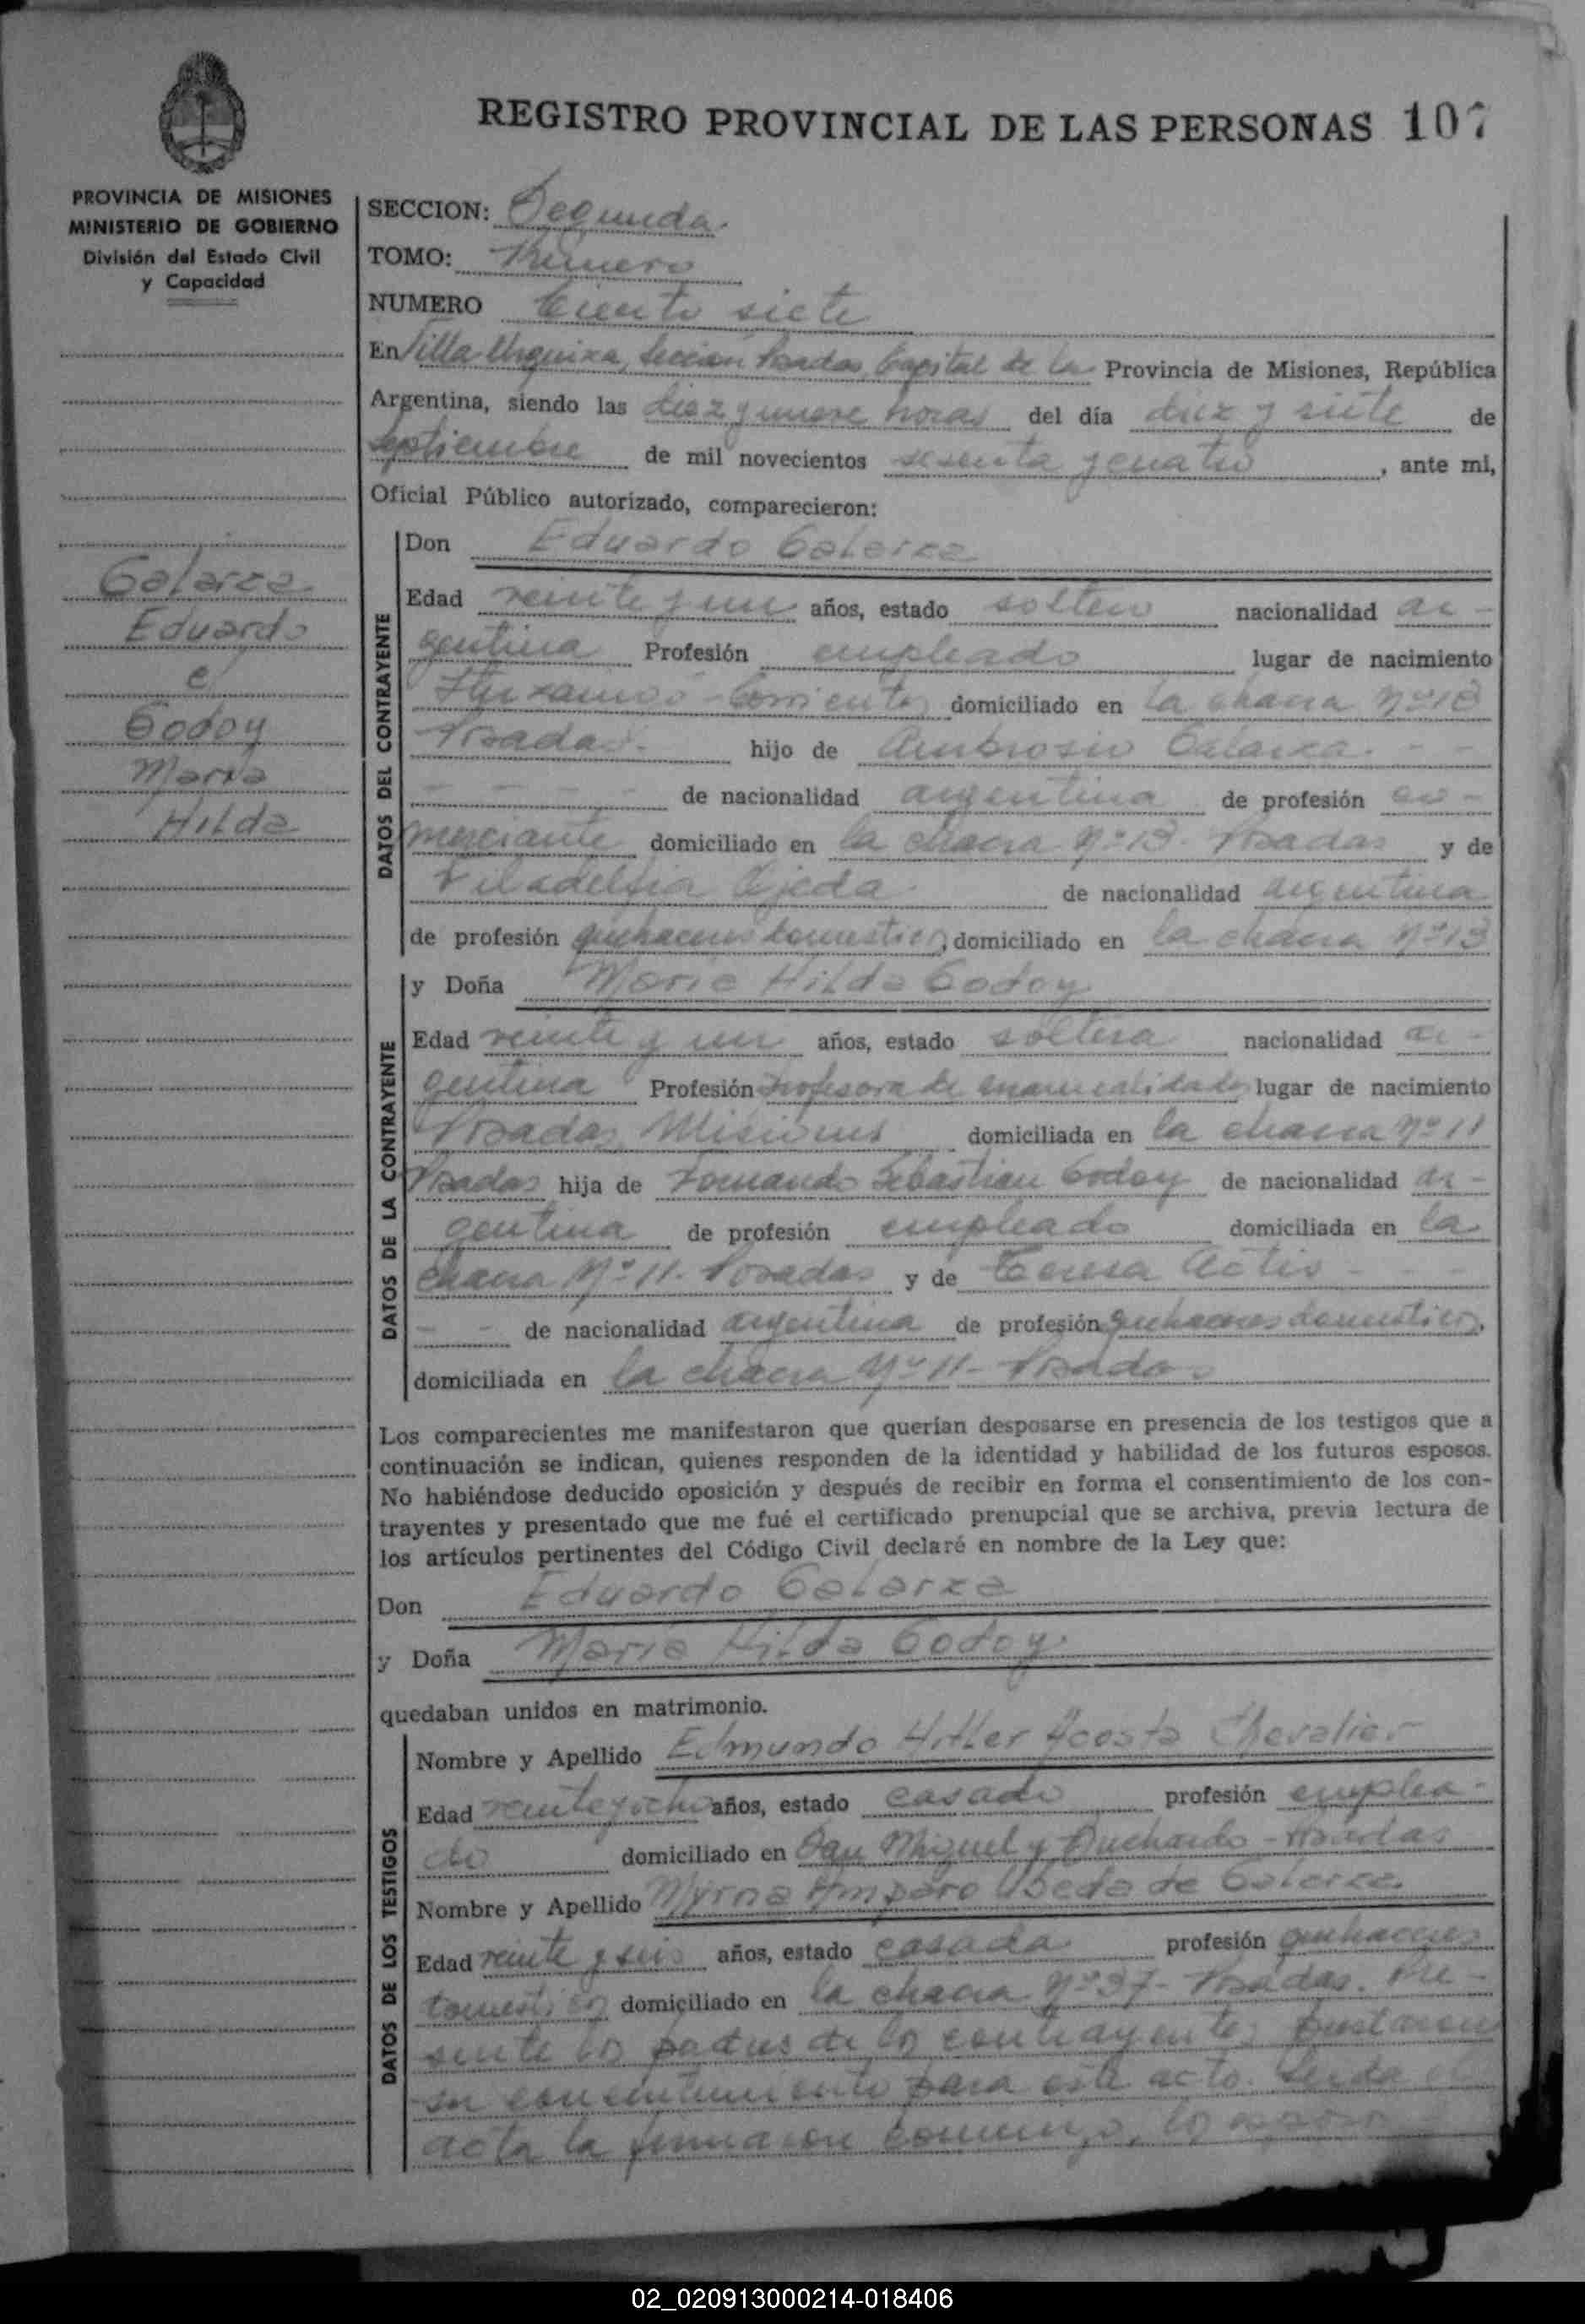 REGISTRO PROVINCIAL DE LAS PERSONAS 107
PROVINCIA DE MISIONES
MINISTERIO DE GOBIERNO
División del Estado Civil
y Capacidad
Galarza
Eduardo
c/
Godoy
María
Hilda
SECCION: Segunda
TOMO: Primero
NUMERO Ciento siete
En Villa Urquiza, Sección Posadas, Capital de la Provincia de Misiones, República
Argentina, siendo las diez y nueve horas del día diez y siete de
septiembre de mil novecientos sesenta y cuatro, ante mi,
Oficial Público autorizado, comparecieron:
DATOS DEL CONTRAYENTE
Don Eduardo Galarza
Edad veinte y un años, estado soltero nacionalidad ar-
gentina Profesión empleado lugar de nacimiento
Ituzaingó - Corrientes domiciliado en la chacra Nº 13
Posadas. hijo de Ambrosio Galarza. - -
- - - - de nacionalidad argentina de profesión co-
merciante domiciliado en la chacra Nº 13. Posadas y de
Filadelfia Ojeda de nacionalidad argentina
de profesión quehaceres domesticos, domiciliado en la chacra Nº 13
DATOS DE LA CONTRAYENTE
y Doña María Hilda Godoy
Edad veinte y un años, estado soltera nacionalidad ar-
gentina Profesión Profesora de manualidades lugar de nacimiento
Posadas Misiones domiciliada en la chacra Nº 11
Posadas hija de Fernando Sebastian Godoy de nacionalidad ar-
gentina de profesión empleado domiciliada en la
chacra Nº 11. Posadas y de Teresa Actis - - -
- - de nacionalidad argentina de profesión quehaceres domesticos,
domiciliada en la chacra Nº 11 - Posadas
Los comparecientes me manifestaron que querían desposarse en presencia de los testigos que a
continuación se indican, quienes responden de la identidad y habilidad de los futuros esposos.
No habiéndose deducido oposición y después de recibir en forma el consentimiento de los con-
trayentes y presentado que me fué el certificado prenupcial que se archiva, previa lectura de
los artículos pertinentes del Código Civil declaré en nombre de la Ley que:
Don Eduardo Galarza
y Doña María Hilda Godoy
quedaban unidos en matrimonio.
DATOS DE LOS TESTIGOS
Nombre y Apellido Edmundo Hitler Acosta Chevalier
Edad veinte y ocho años, estado casado profesión emplea-
do domiciliado en San Miguel y Buchardo - Posadas
Nombre y Apellido Myrna Amparo Ubeda de Galarza
Edad veinte y seis años, estado casada profesión quehaceres
domesticos domiciliado en la chacra Nº 37 - Posadas. Pre-
sente los padres de los contrayentes prestaron
su consentimiento para este acto. Leida el
acta la firmaron conmigo, los esposos
02_020913000214-018406